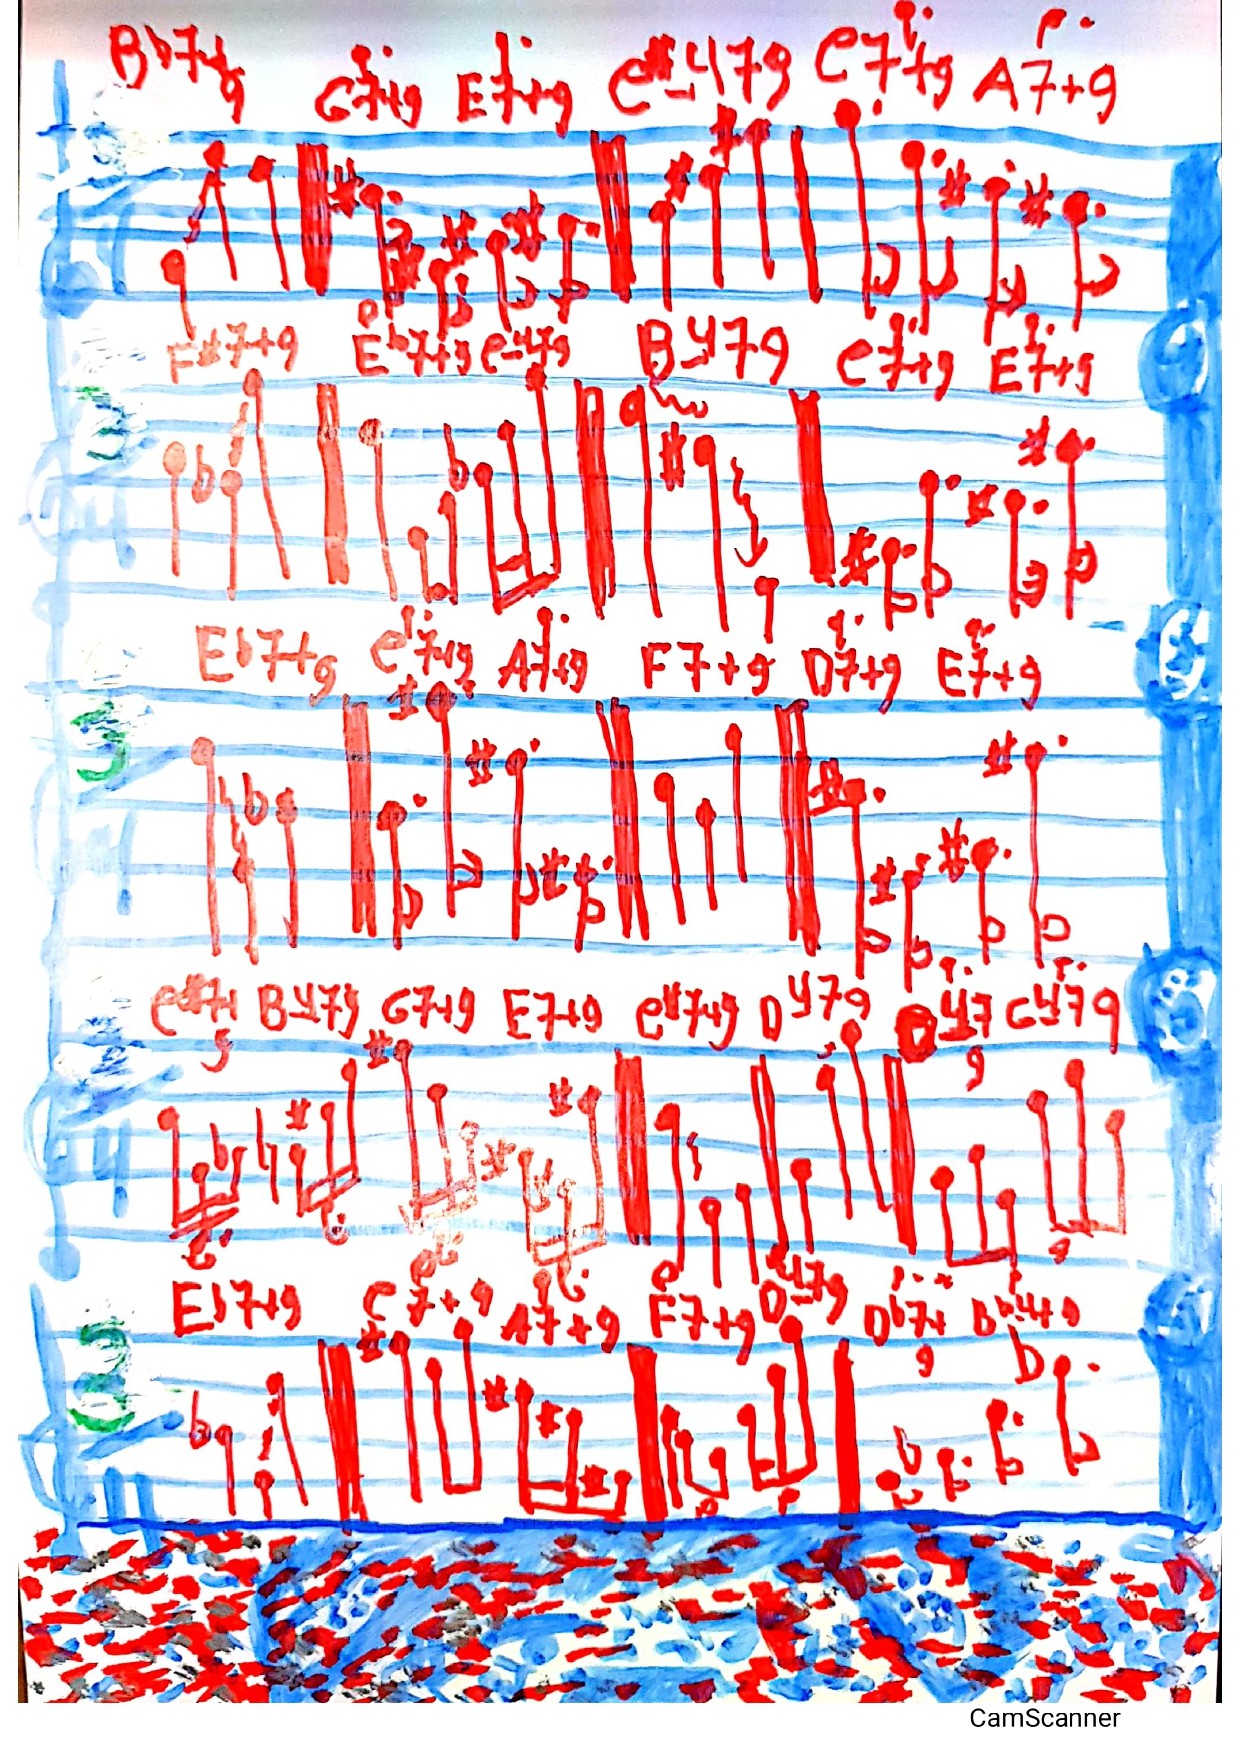 Bb7+9 G7+9 E7+9 C#-479 C7+9 A7+9
3
4
F#7+9 Eb7+9 C-479 B-479 C7+9 E7+9
3
4
Eb7+9 C7+9 A7+9 F7+9 D7+9 E7+9
3
4
C#7+9 B479 G7+9 E7+9 C#7+9 D479 479 G479
4
Eb7+9 C7+9 A7+9 F7+9 D-479 Db7+9 Bb4+9
3
4
CamScanner